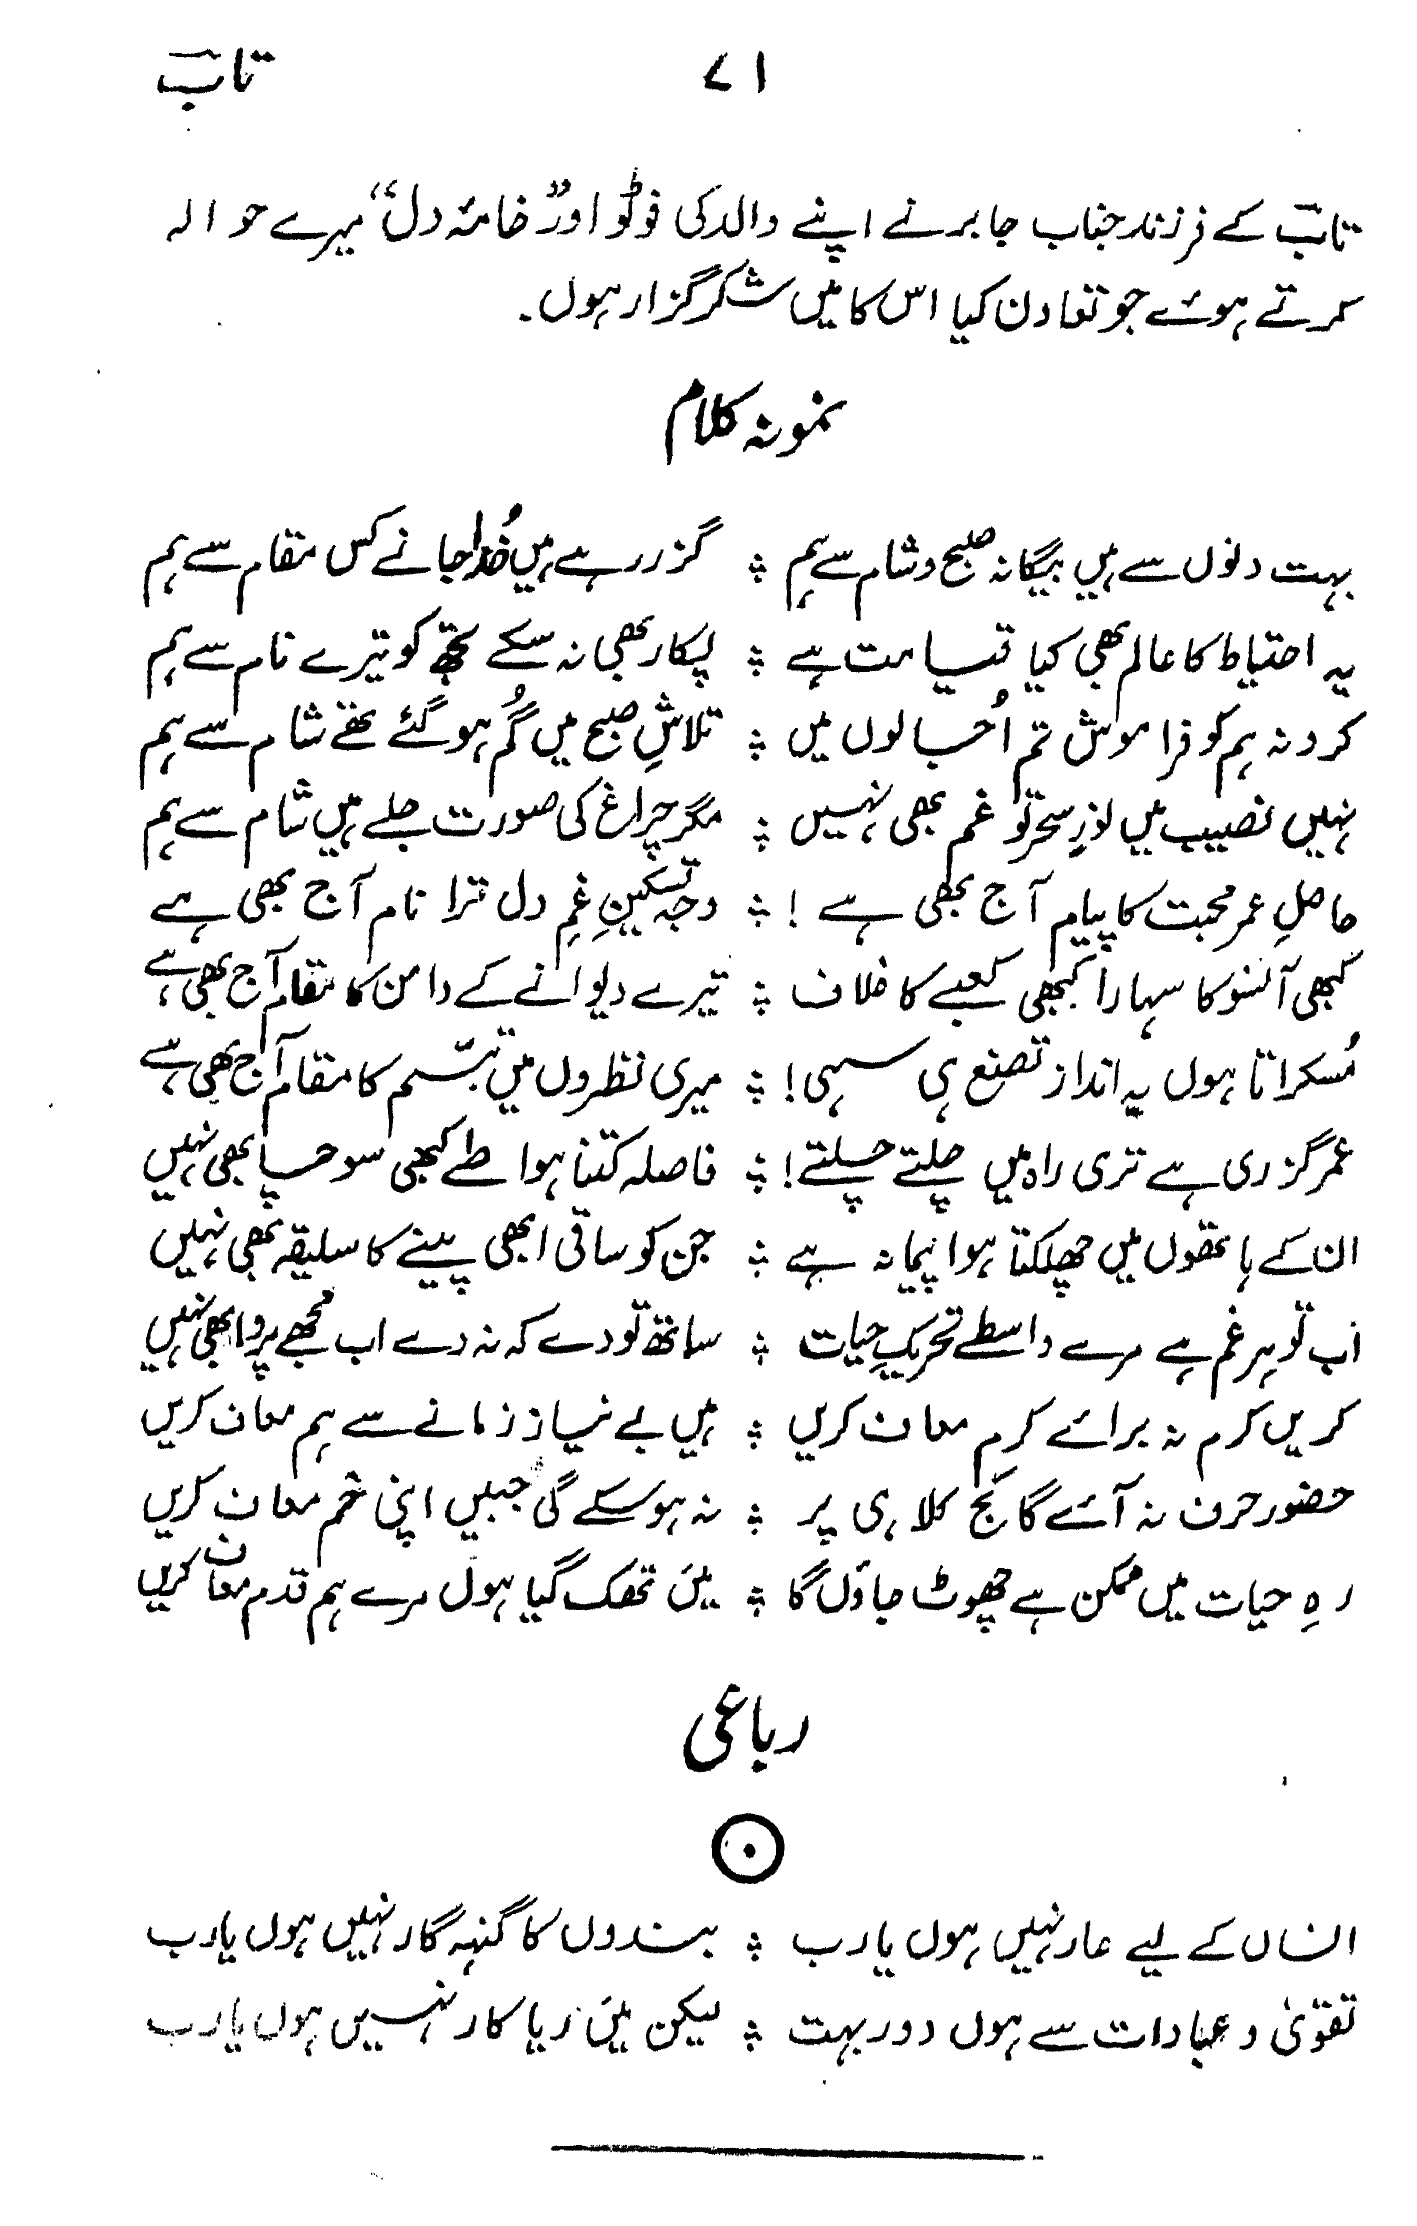 تابؔ ۷۱
تابؔ کے فرزند جناب جابر نے اپنے والد کی فوٹو اور ”خامۂ دل“ میرے حوالہ
کرتے ہوئے جو تعاون کیا اس کا میں شکرگزار ہوں۔
نمونہ کلام
بہت دنوں سے ہیں بیگانہ صبح و شام سے ہم ؞ گزر رہے ہیں خُدا جانے کس مقام سے ہم
یہ احتیاط کا عالم بھی کیا قیامت ہے ؞ پکار بھی نہ سکے تجھ کو تیرے نام سے ہم
کرو نہ ہم کو فراموش تم اُجالوں میں ؞ تلاشِ صبح میں گُم ہو گئے تھے شام سے ہم
نہیں نصیب میں نورِ سحر تو غم بھی نہیں ؞ مگر چراغ کی صورت جلے ہیں شام سے ہم
حاصلِ عمر محبت کا پیام آج بھی ہے ! ؞ وجہ تسکینِ غمِ دل ترا نام آج بھی ہے
کبھی آنسو کا سہارا کبھی کعبے کا غلاف ؞ تیرے دیوانے کے دامن کا مقام آج بھی ہے
مُسکراتا ہوں یہ انداز تصنع ہی سہی ! ؞ میری نظروں میں تبسّم کا مقام آج بھی ہے
عمر گزری ہے تری راہ میں چلتے چلتے ! ؞ فاصلہ کتنا ہوا طے کبھی سوچا بھی نہیں
ان کے ہاتھوں میں چھلکتا ہوا پیمانہ ہے ؞ جن کو ساقی ابھی پینے کا سلیقہ بھی نہیں
اب تو ہر غم ہے مرے واسطے تحریکِ حیات ؞ ساتھ تو دے کہ نہ دے اب مجھے پروا بھی نہیں
کریں کرم نہ برائے کرم معاف کریں ؞ ہیں بے نیاز زمانے سے ہم معاف کریں
حضور حرف نہ آئے گا کج کلاہی پر ؞ نہ ہو سکے گی جبیں اپنی خم معاف کریں
رہِ حیات میں ممکن ہے چھوٹ جاؤں گا ؞ میں تھک گیا ہوں مرے ہم قدم معاف کریں
رباعی
انساں کے لیے عار نہیں ہوں یارب ؞ بندوں کا گنہہ گار نہیں ہوں یارب
تقویٰ و عبادات سے ہوں دور بہت ؞ لیکن میں ریا کار نہیں ہوں یارب